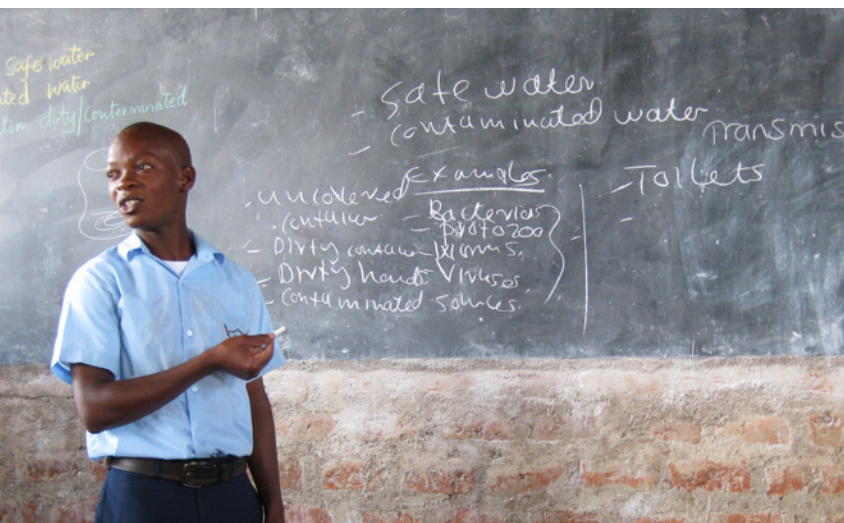 safe water
ted water
dirty/conterminated
- safe water.
- contaminated water
Transmis
Examples.
- uncovered
container
- Dirty container
- Dirty hands
- contaminated sources.
- Bacterias
- protozoa
Viruses.
- Toilets
-